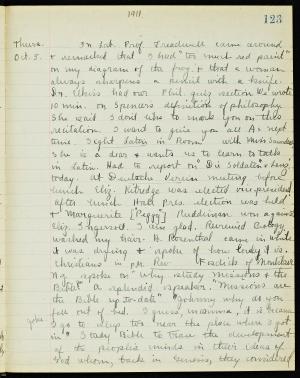 1911.
123
Thurs. In Lab. Prof. Treadwell came around
Oct. 5. & remarked that I had "too much red paint"
on my diagram of the frog, & that a woman
always sharpens a pencil with a knife.
Dr. White had our Phil. quiz section. We wrote
10 min. on Spencer's definition of philosophy.
She said I don't like to mark you on this
recitation. I want to give you all A+ next
time. Sight Latin in Room with Miss Saunders
She is a dear & wants us to learn to talk
in Latin. Had to report on "Die Soldaten Kunz"
today. At Deutsche Verein meeting before
lunch Eliz. Kitredge was elected vice president
after lunch Hall Pres. election was held
& Marguerite [Peggy] Ruddiman won against
Eliz. Ingersoll. I am glad. Reviewed Biology
washed my hair. H. Rosenthal came in while
I was drying & spoke of how lucky the
Christians in are. of Montclair
N.J. spoke on "Why study missions & the
Bible" A splendid speaker. "Missions are
the Bible up-to-date" Johnny why did you
fall out of bed. I guess, mamma, it is because
joke I go to sleep too near the place where I got
in" Study Bible to trace the development
of the people's minds in their ideas of
God whom, back in Genesis, they considered